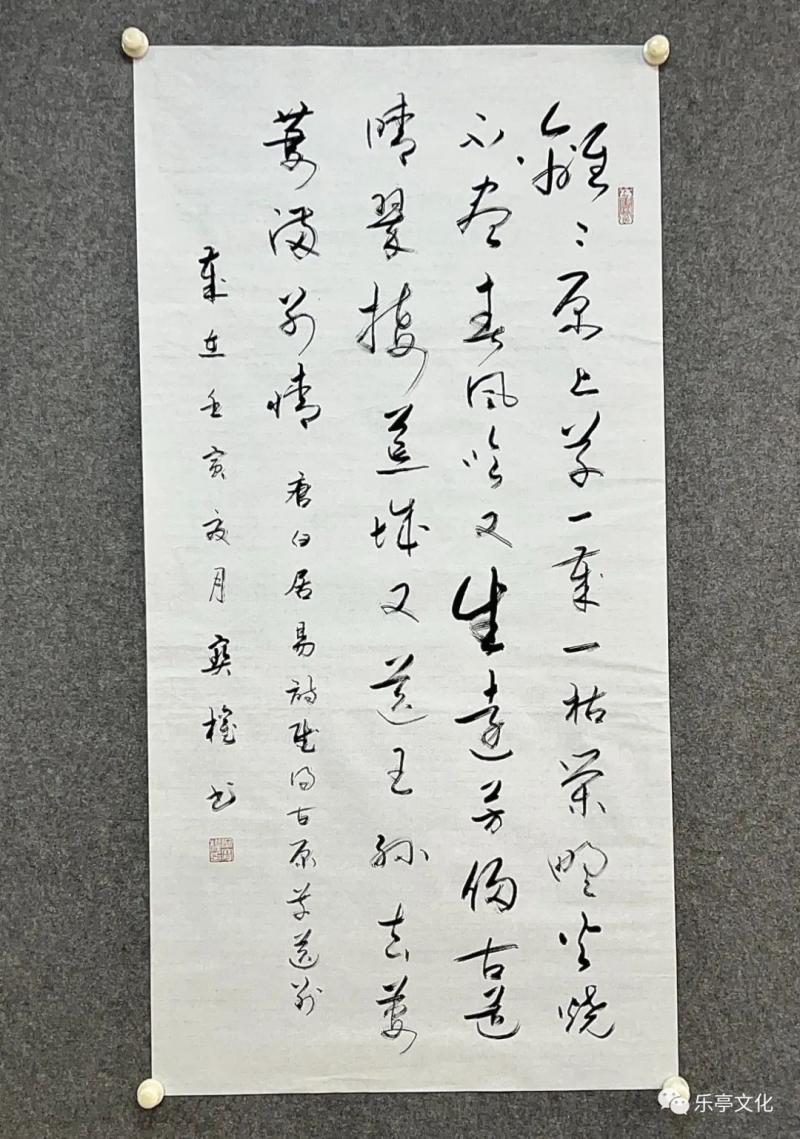 離〻原上草一歲一枯榮野火燒
不盡春風吹又生遠芳侵古道
晴翠接荒城又送王孫去萋
萋滿別情 唐白居易詩賦得古原草送別
歲在壬寅月書
乐亭文化